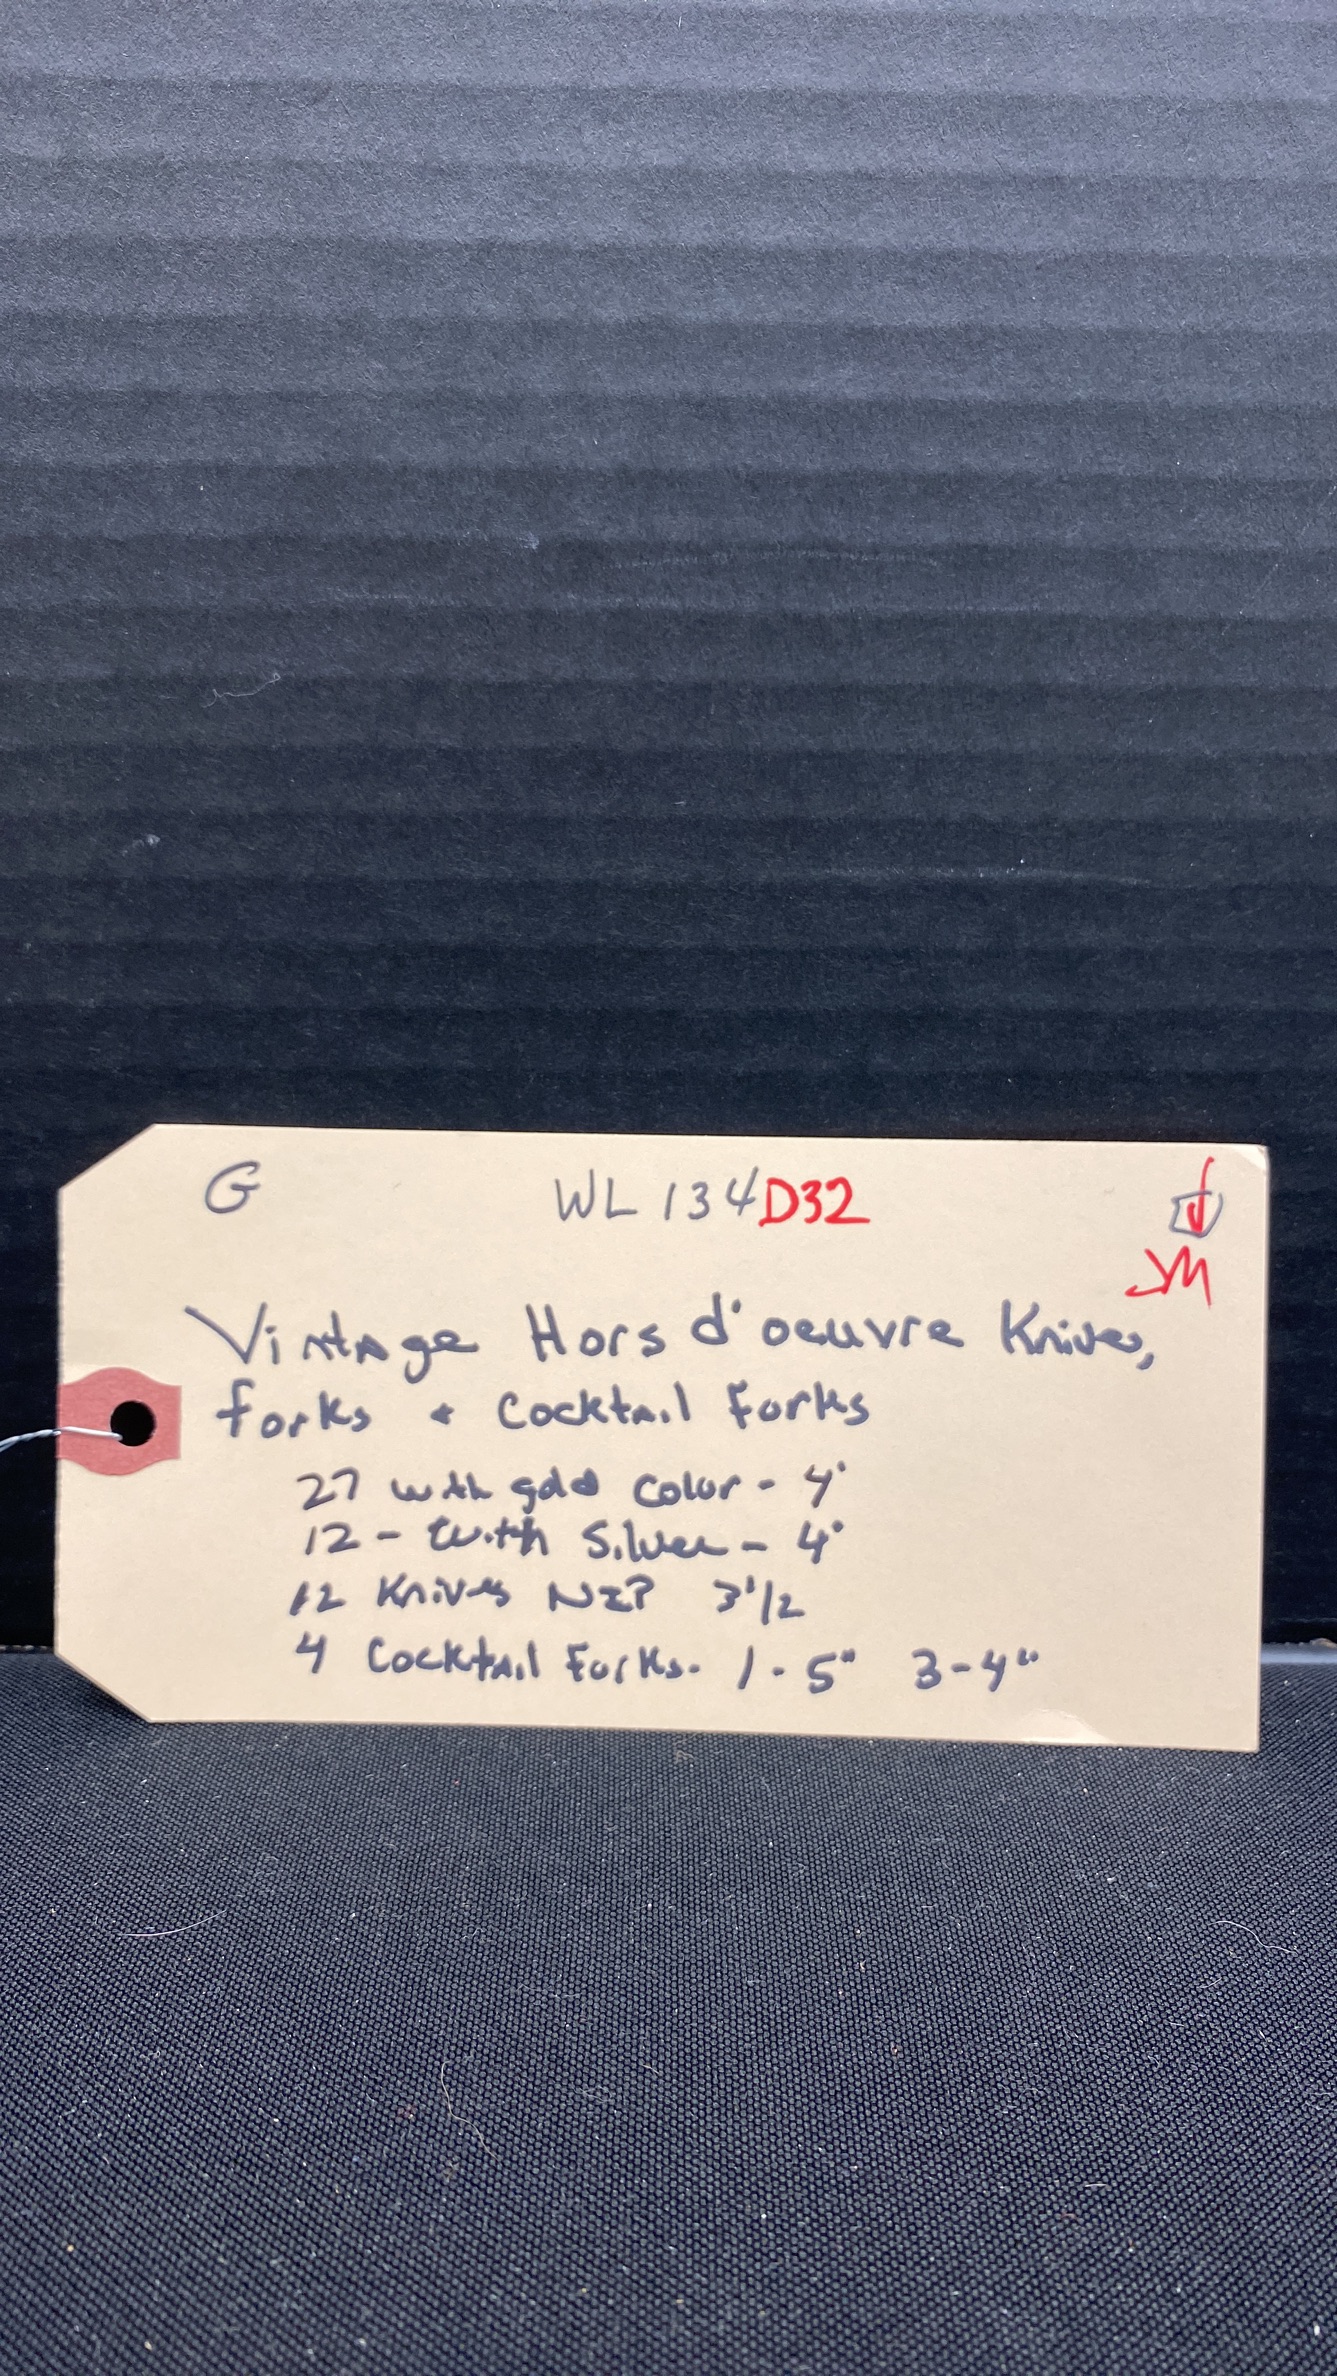 G WL 134 D32
YM
Vintage Hors d'oeuvre Knives,
forks + Cocktail Forks
27 with gold color - 4"
12 - with Silver - 4"
12 Knives 3 1/2
4 Cocktail Forks - 1 - 5" 3 - 4"